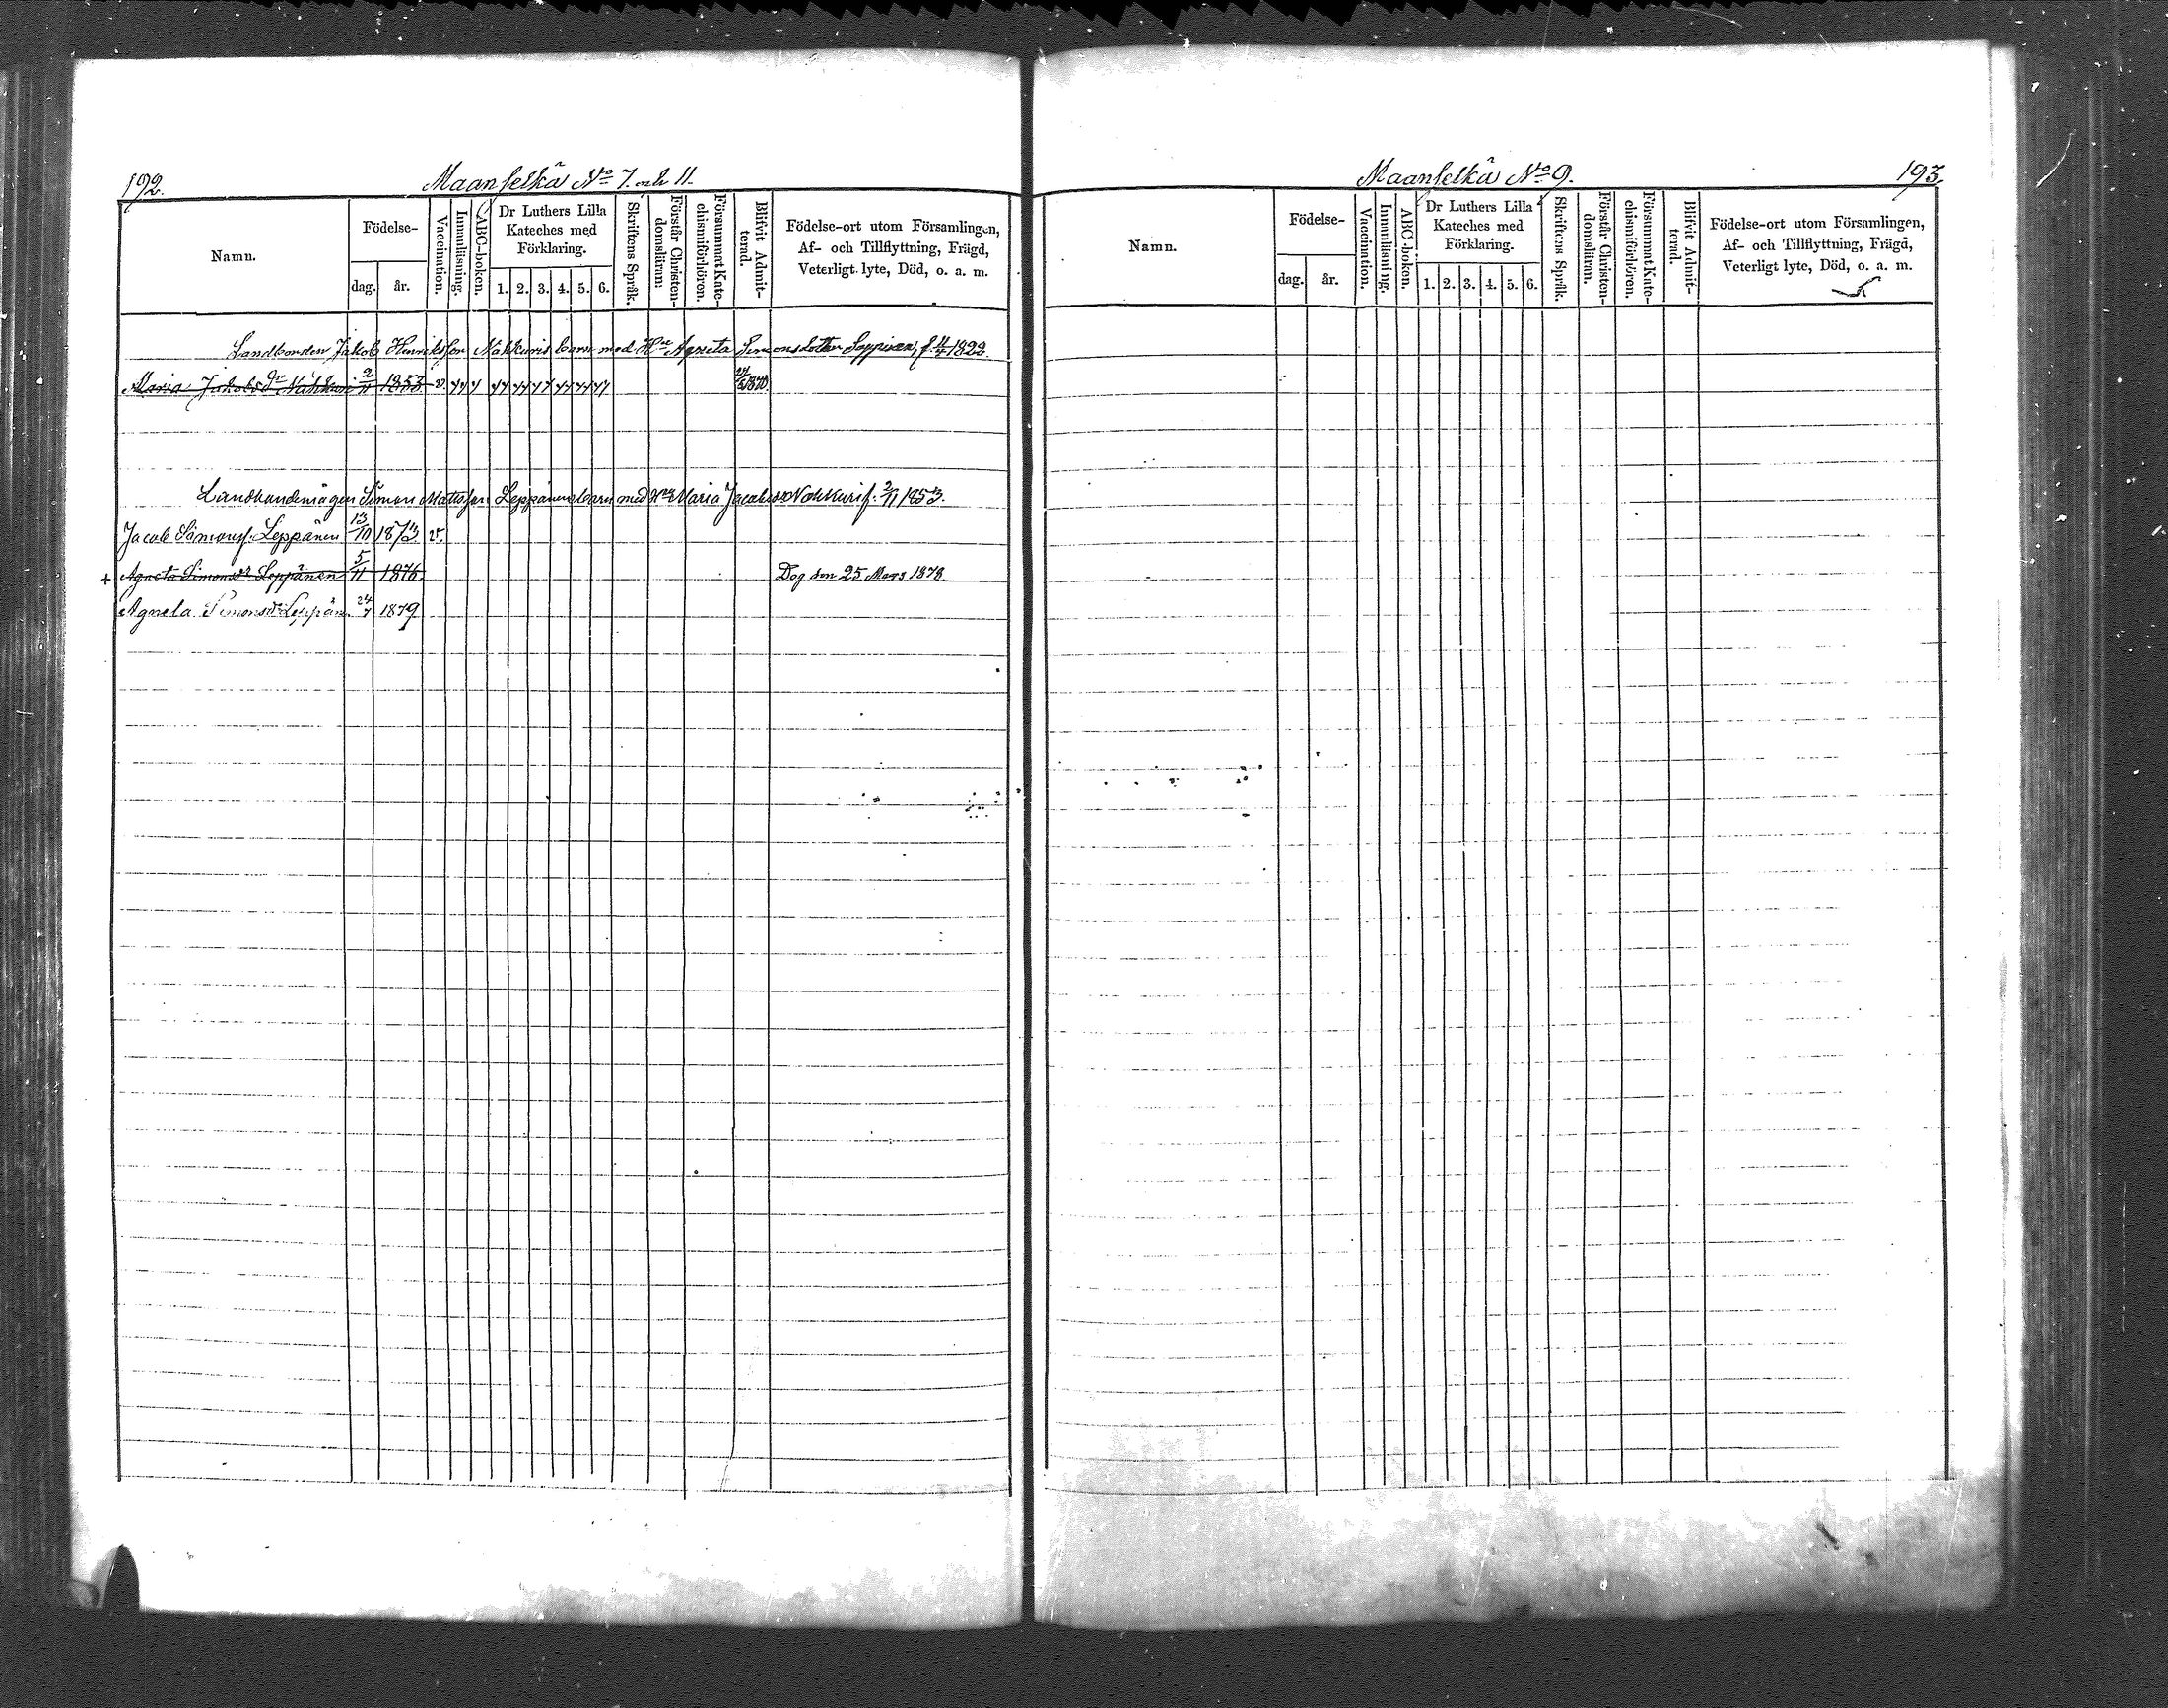 192.
Maanselkä No 7. och 11.
Namn.
Födelse-
dag.
år.
Vaccination.
Innanläsning.
ABC-boken.
Dr Luthers Lilla
Kateches med
Förklaring.
1. 2. 3. 4. 5. 6.
Skriftens Språk.
Förstår Christen-
domsläran.
Försummat Kate-
chismiförhören.
Blifvit Admit-
terad.
Födelse-ort utom Församlingen,
Af- och Tillflyttning, Frägd,
Veterligt lyte, Död, o. a. m.
Landbonden Jakob Henriksson Nakkuris barn med Hu Agneta Simonsdotter f. 1822.
Maria Jakobsdr Nakkuri 2/11 1853 v. 1870
Landbondemågen Simon Mattsson Leppänens barn med Hu Maria Jacobsdr Nakkuri f. 2/11 1853.
Jacob Simonss. Leppänen 13/10 1873 v.
+ Agneta Simonsdr Leppänen 5/11 1876 Dog den 25 Mars 1878
Agneta Simonsdr Leppän. 24/7 1879
Maanselkä No 9.
193.
Namn.
Födelse-
dag.
år.
Vaccination.
Innanläsning.
ABC-boken.
Dr Luthers Lilla
Kateches med
Förklaring.
1. 2. 3. 4. 5. 6.
Skriftens Språk.
Förstår Christen-
domsläran.
Försummat Kate-
chismiförhören.
Blifvit Admit-
terad.
Födelse-ort utom Församlingen,
Af- och Tillflyttning, Frägd,
Veterligt lyte, Död, o. a. m.